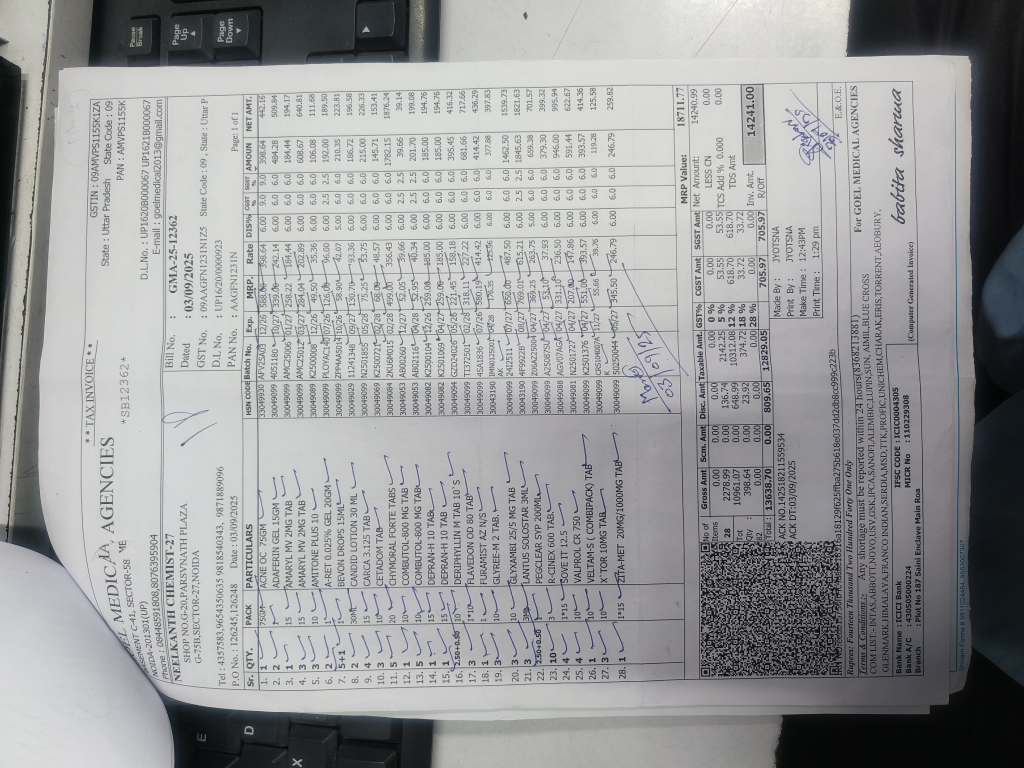 Pause
Break
Page
Up
Page
Down
E
D
X
* * TAX INVOICE * *
GSTIN : 09AMVPS1155K1ZA
MEDICAL AGENCIES
*SB12362*
State : Uttar Pradesh State Code : 09
PAN : AMVPS1155K
BASEMENT C-41, SECTOR-58
NOIDA-201301(UP)
Phone : 08448591808,8076355904
D.L.No. : UP1620B000067 UP1621B000067
E-mail : goelmedical2013@gmail.com
NEELKANTH CHEMIST-27
SHOP NO.G-20,PARSVNATH PLAZA
G-75B,SECTOR-27,NOIDA
Tel :4357583,9654350635 9818540343, 9871889096
P.O No. : 126245,126248 Date : 03/09/2025
Bill No. : GMA-25-12362
Dated : 03/09/2025
GST No. : 09AAGFN1231N1Z5 State Code : 09 , State : Uttar P
D.L No. : UP16/20/0000923
PAN No. : AAGFN1231N Page: 1 of 1
Sr. QTY. PACK PARTICULARS HSN CODE Batch No. Exp. MRP. Rate DIS% CGST % SGST % AMOUN NET AMT.
1. 1 75GM ACNE OC 75GM 33049930 AFV25A03 12/26 588.00 398.64 6.00 9.0 9.0 398.64 442.16
2. 2 1 ADAFERIN GEL 15GM 30049099 A051180 10/27 339.00 242.14 6.00 6.0 6.0 484.28 509.84
3. 1 15 AMARYL MV 2MG TAB 30049099 AMC25006 01/27 258.22 184.44 6.00 6.0 6.0 184.44 194.17
4. 3 15 AMARYL MV 2MG TAB 30049099 AMC25012 03/27 284.04 202.89 6.00 6.0 6.0 608.67 640.81
5. 3 10 AMITONE PLUS 10 30045089 KZ500008 12/26 49.50 35.36 6.00 6.0 6.0 106.08 111.68
6. 2 1 A-RET 0.025% GEL 20GM 30049099 PLOYAC1401 07/26 126.00 96.00 6.00 2.5 2.5 192.00 189.50
7. 5+1 1 BEVON DROPS 15ML 30045099 ZPP4AAS014 10/26 58.90 42.07 5.00 6.0 6.0 210.35 223.81
8. 2 30ML CANDID LOTION 30 ML 30049029 11241348 09/27 130.70 93.36 6.00 6.0 6.0 186.72 196.58
9. 4 15 CARCA 3.125 TAB 30049099 N2501855 05/27 75.25 53.75 6.00 6.0 6.0 215.00 226.33
10. 3 10 CETADOM TAB 30049069 KZ500721 02/28 68.00 48.57 6.00 6.0 6.0 145.71 153.41
11. 5 20 CHYMORAL FORTE TABS 30049084 2XUJM015 04/27 499.00 356.43 6.00 6.0 6.0 1782.15 1876.24
12. 1 10 COMBUTOL-800 MG TAB 30049053 AB00260 12/27 52.05 39.66 6.00 2.5 2.5 39.66 39.14
13. 5 10 COMBUTOL-800 MG TAB 30049053 AB02116 04/28 52.95 40.34 6.00 2.5 2.5 201.70 199.08
14. 1 15 DEPRAN-H 10 TAB 30049082 KZ500104 12/27 259.00 185.00 6.00 6.0 6.0 185.00 194.76
15. 1 15 DEPRAN-H 10 TAB 30049082 KZ501069 04/28 259.00 185.00 6.00 6.0 6.0 185.00 194.76
16. 2.50+0.50 10 DERIPHYLLIN M TAB 10`S 30049099 GZD24026 05/26 221.45 158.18 6.00 6.0 6.0 395.45 416.32
17. 3 1*10 FLAVEDON OD 80 TAB 30049099 TT372501 03/28 318.11 227.22 6.00 6.0 6.0 681.66 717.66
18. 1 1 FURAMIST AZ N/S 30049099 45A1836 07/26 580.19 414.42 6.00 6.0 6.0 414.42 436.29
19. 3 10 GLYREE-M 2 TAB 30043190 377.88 397.83
20. 3 10 GLYXAMBI 25/5 MG TAB 30049099 24D2511 07/27 650.00 487.50 6.00 6.0 6.0 1462.50 1539.73
21. 3 3ML LANTUS SOLOSTAR 3ML 30043190 4F9502B 08/27 769.01 615.21 6.00 2.5 2.5 1845.63 1821.63
22. 2.50+0.50 1 PEGCLEAR SYP 200ML 30049099 ZD6A225004 04/27 369.25 263.75 6.00 6.0 6.0 659.38 701.57
23. 10 3 R-CINEX 600 TAB 30049099 A2508750 04/27 37.93 6.00 6.0 6.0 379.30 399.32
24. 4 1*15 SOVE IT 12.5 30049088 AEAV07ACA 04/27 331.10 236.50 6.00 6.0 6.0 946.00 995.94
25. 4 10 VALPROL CR 750 30049081 N2501727 04/27 207.00 147.86 6.00 6.0 6.0 591.44 622.67
26. 1 10 VELTAM-S ( COMBIPACK) TAB 30049099 KZ501376 04/27 551.00 393.57 6.00 6.0 6.0 393.57 414.36
27. 3 10 X TOR 10MG TAB 30049099 11/27 55.66 39.76 6.00 6.0 6.0 119.28 125.58
28. 1 1*15 ZITA-MET 20MG/1000MG TAB 30049099 SG250044 05/27 345.50 246.79 6.00 6.0 6.0 246.79 259.82
03/09/25
MRP Value: 18711.77
No of Items 28 Gross Amt Scm. Amt Disc. Amt Taxable Amt. GST% CGST Amt SGST Amt
0.00 0.00 0.00 0.00 0 % 0.00 0.00
2278.99 0.00 136.74 2142.25 5 % 53.55 53.55
10961.07 0.00 648.99 10312.08 12 % 618.70 618.70
398.64 0.00 23.92 374.72 18 % 33.72 33.72
0.00 0.00 0.00 0.00 28 % 0.00 0.00
Total : 13638.70 0.00 809.65 12829.05 705.97 705.97
Net Amount: 14240.99
LESS CN 0.00
TCS Add % 0.000 0.00
TDS Amt
Inv. Amt. 14241.00
R/Off
ACK NO.142518211559534
ACK DT:03/09/2025
Made By : JYOTSNA
Print By : JYOTSNA
Make Time : 12:43PM
Print Time : 1:29 pm
Rupees: Fourteen Thousand Two Hundred Forty One Only
E.& O.E.
Terms & Condition :- Any Shortage must be reported within 24 hours(8368213881)
COM LIST:- INTAS,ABBOTT,NOVO,USV,GSK,IPCA,SANOFI,ALEMBIC,LUPIN,SUN,AMIL,BLUE CROSS
GLENMARK,HIMALAYA,FRANCO INDIAN,SERDIA,MSD,TTK,PROFIC,UNICHEM,CHARAK,ERIS,TORRENT,AEOBURY,
For GOEL MEDICAL AGENCIES
Bank Name : ICICI Bank IFSC CODE : ICIC0004305
Bank A/C : 430505000224 MICR No : 110229308
Branch : Plot No 187 Saini Enclave Main Roa
(Computer Generated Invoice)
babita sharma